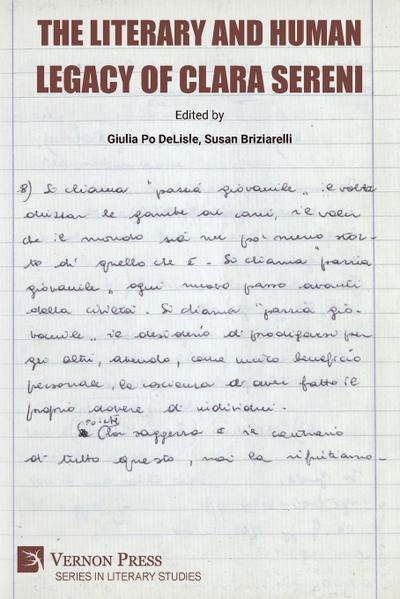 THE LITERARY AND HUMAN
LEGACY OF CLARA SERENI
Edited by
Giulia Po DeLisle, Susan Briziarelli
8) Si chiama "pazzia giovanile" il voler
drizzar le gambe ai cani, il voler
che il mondo sia un po' meno stor-
to di quello che è. Si chiama "pazzia
giovanile" ogni nuovo passo avanti
della civiltà. Si chiama "pazzia gio-
vanile" il desiderio di prodigarsi per
gli altri, avendo, come unico beneficio
personale, la coscienza di aver fatto il
proprio dovere di individui.
Poiché
saggezza è il contrario
di tutto questo, noi la rifiutiamo.
VERNON PRESS
SERIES IN LITERARY STUDIES